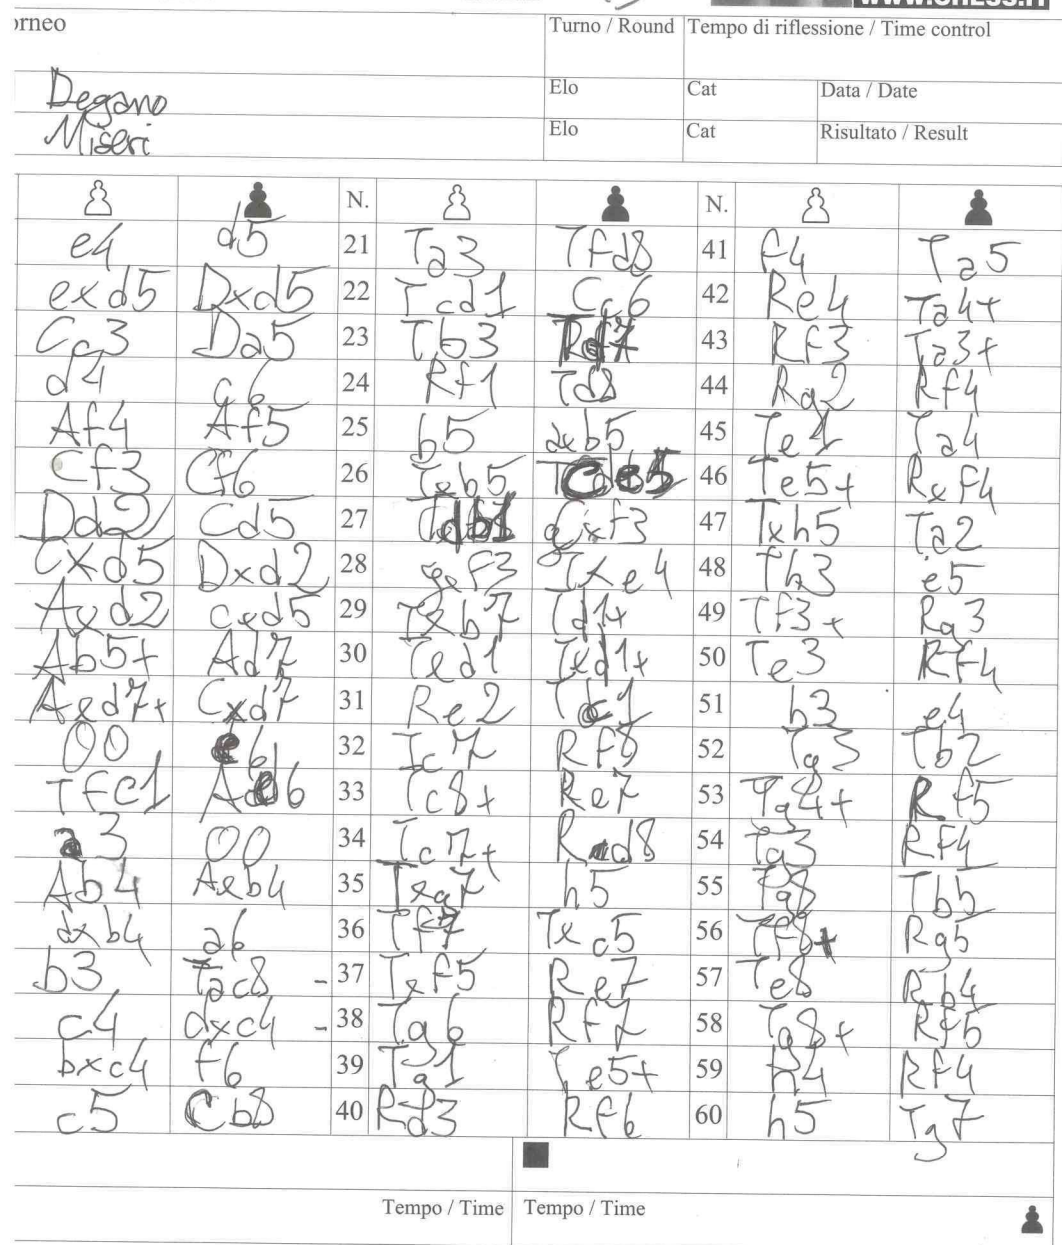 orneo
Turno / Round Tempo di riflessione / Time control
Degano Elo Cat Data / Date
Miseri Elo Cat Risultato / Result
N. N.
e4 d5 21 Ta3 Tfd8 41 f4 Ta5
exd5 Dxd5 22 Tcd1 Cc6 42 Re4 Ta4+
Cc3 Da5 23 Tb3 43 Rf3 Ta3+
d4 c6 24 Rf1 Td8 44 Rg2 Rf4
Af4 Af5 25 b5 axb5 45 Ta4
Cf3 Cf6 26 Txb5 46 Te5+ Rxf4
Dd2 Cd5 27 Tdb1 Cxf3 47 Txh5 Ta2
Cxd5 Dxd2 28 gxf3 Txe4 48 Th3 e5
Axd2 cxd5 29 Txb7 Td1+ 49 Tf3+ Rg3
Ab5+ Ad7 30 Txd1 Txd1+ 50 Te3 Rf4
Axd7+ Cxd7 31 Re2 Tc1 51 b3 e4
00 e6 32 Tc7 Rf8 52 Tg3 Tb2
Tfc1 Ad6 33 Tc8+ Re7 53 Tg4+ Rf5
a3 00 34 Tc7+ Rd8 54 Tg3 Rf4
Ab4 Axb4 35 Txg7 h5 55 Tg8 Tb5
axb4 a6 36 Tf7 Txc5 56 Tf8+ Rg5
b3 Tac8 - 37 Txf5 Re7 57 Te8 Rb4
c4 dxc4 - 38 Tg6 Rf7 58 Tg8+ Rf5
bxc4 f6 39 Tg1 Te5+ 59 h4 Rf4
c5 Cb8 40 Rd3 Rf6 60 h5 Tg7
Tempo / Time Tempo / Time